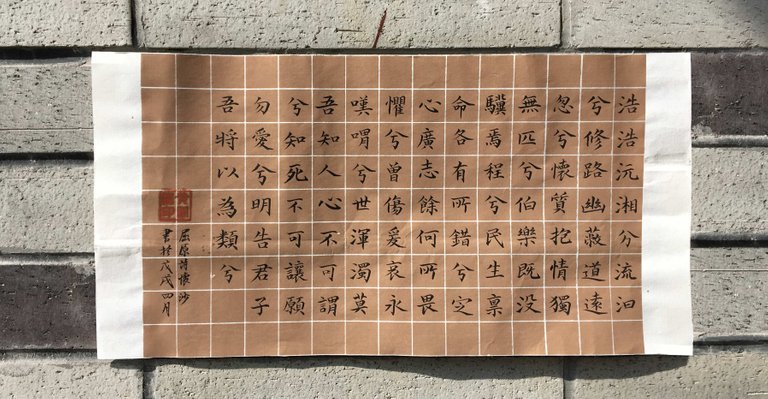 浩浩沅湘分流汩
兮修路幽蔽道遠
忽兮懷質抱情獨
無匹兮伯樂既没
驥焉程兮民生稟
命各有所錯兮定
心廣志餘何所畏
懼兮曾傷爰哀永
嘆喟兮世渾濁莫
吾知人心不可謂
兮知死不可讓願
勿愛兮明告君子
吾將以為類兮
屈原詩懷沙
書於戊戌四月